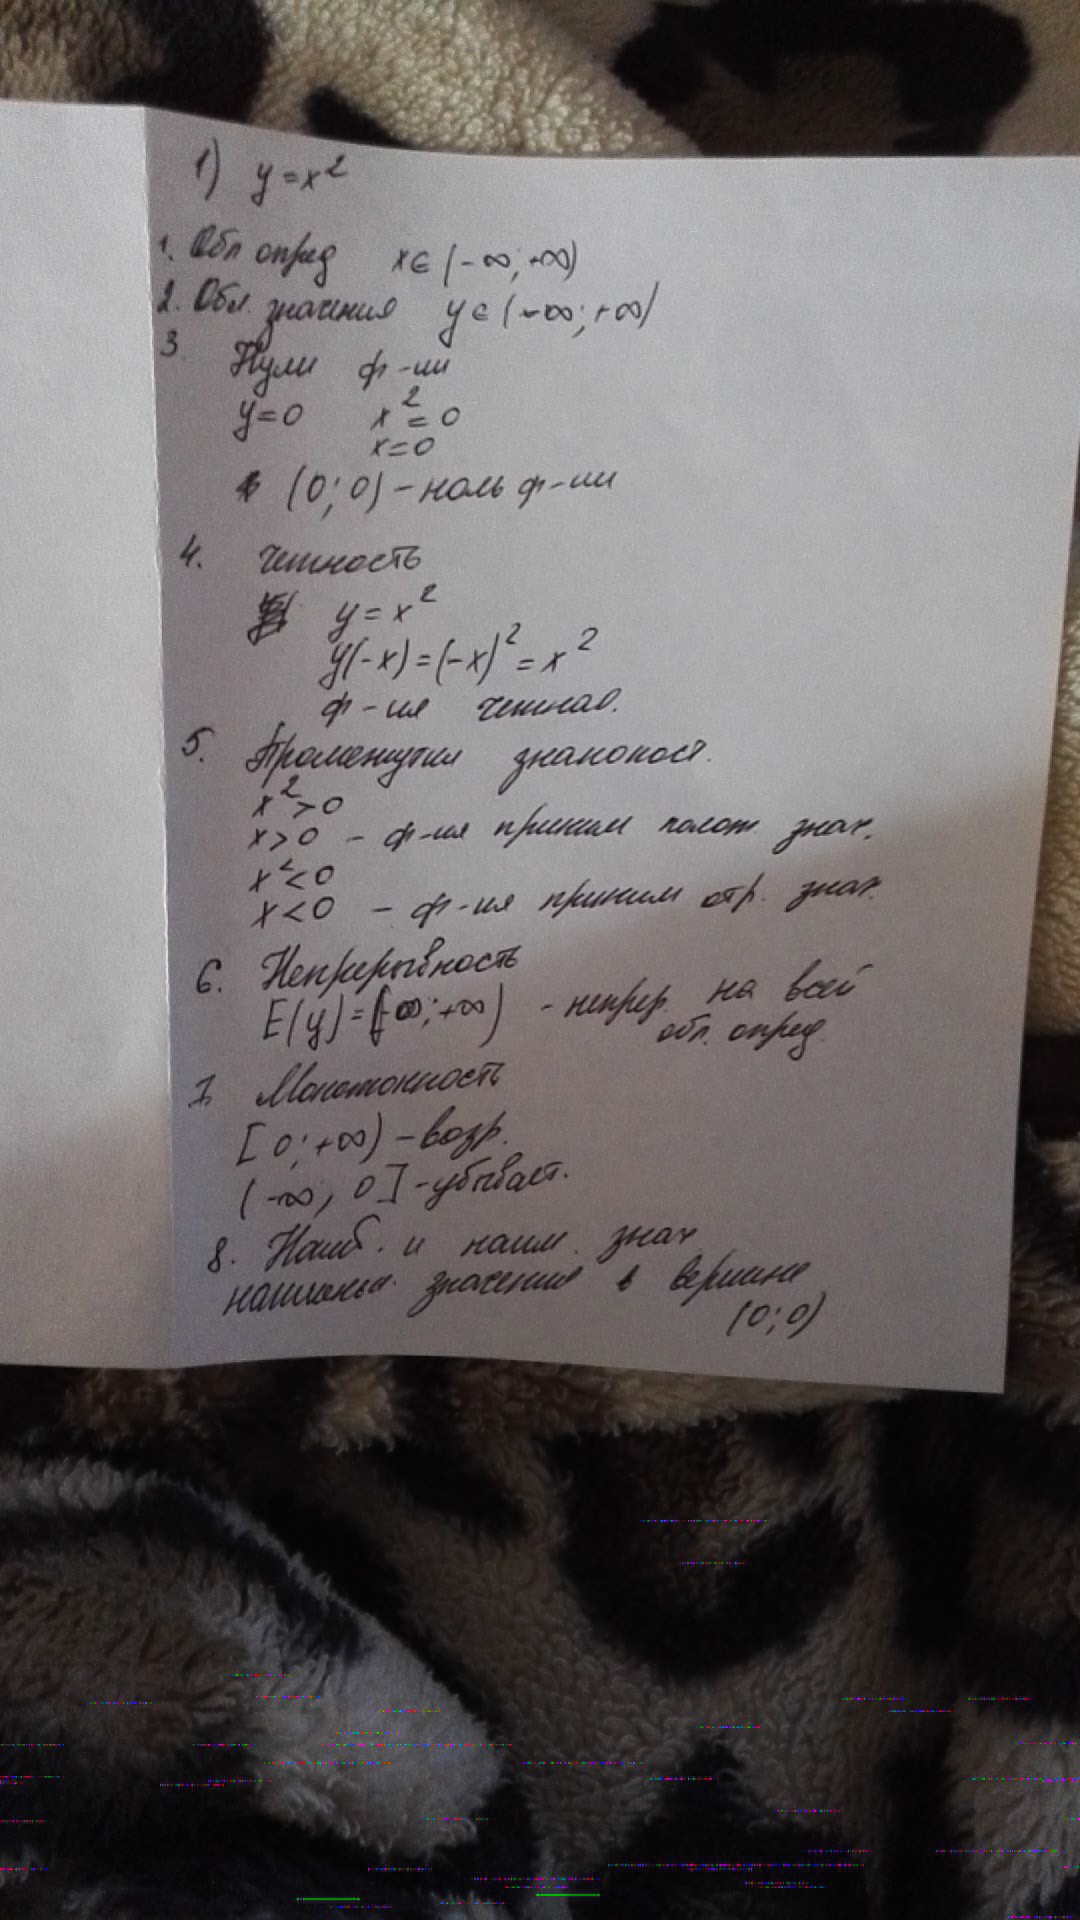 1) y = x²
1. Обл опред x ∈ (-∞; +∞)
2. Обл. значения y ∈ (-∞; +∞)
3.
Нули ф-ии
y=0 x² = 0
x=0
(0; 0) – ноль ф-ии
4. четность
y = x²
y(-x) = (-x)² = x²
ф-ия четная.
5. Промежутки знакопост.
x² > 0
x > 0 – ф-ия приним полож. знач.
x² < 0
x < 0 – ф-ия приним отр. знач.
6. Непрерывность
E(y) = (-∞; +∞) - непрер. на всей
обл. опред.
7. Монотонность
[0; +∞) – возр.
(-∞; 0] - убывает.
8. Наиб. и наим. знач
значение в вершине
(0; 0)